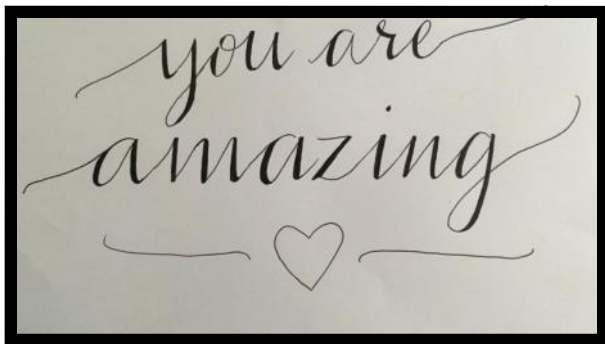 you are
amazing